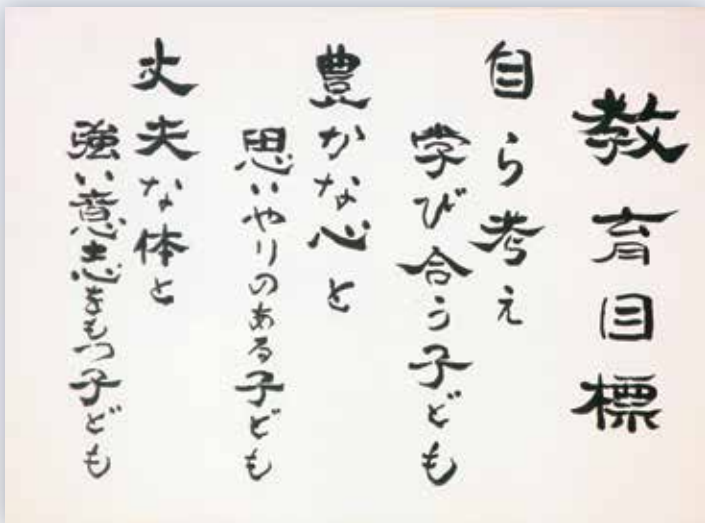 教育目標
自ら考え
学び合う子ども
豊かな心と
思いやりのある子ども
丈夫な体と
強い意志をもつ子ども